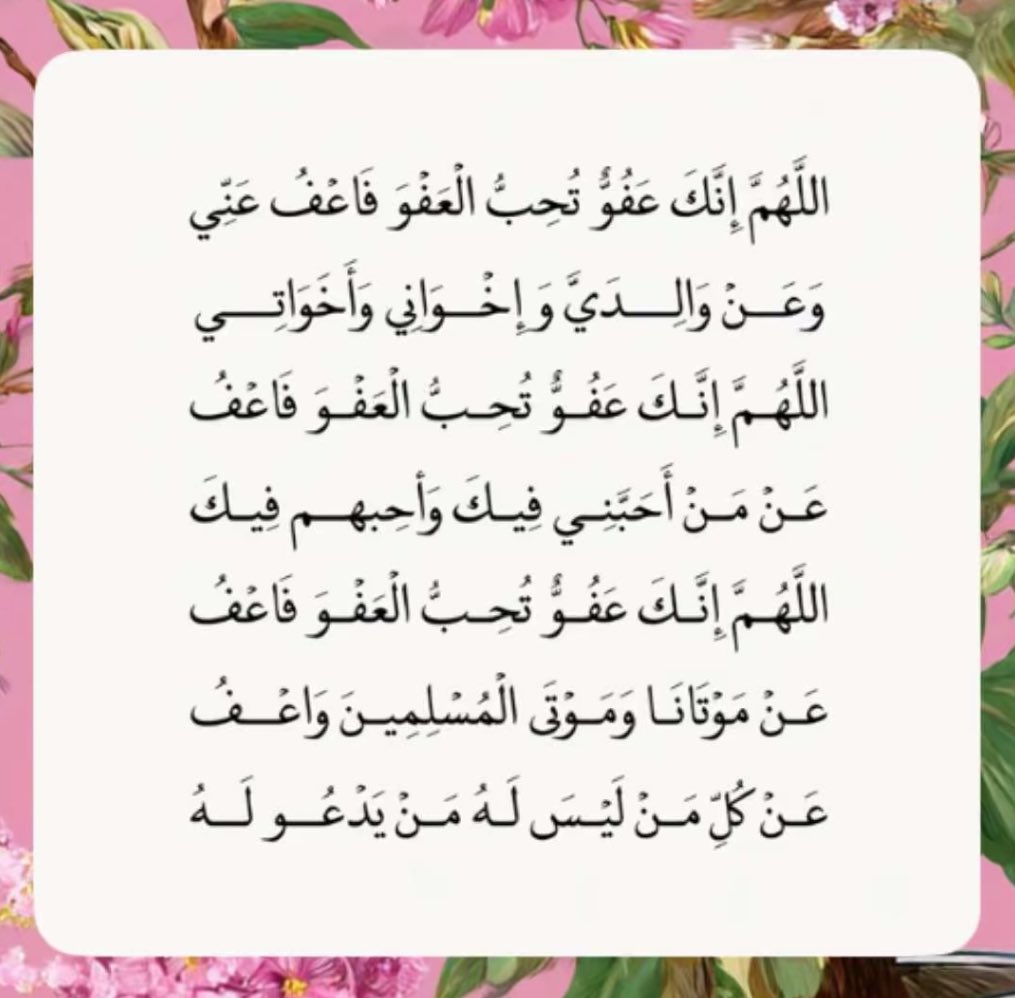 اللَّهُمَّ إِنَّكَ عَفُوٌّ تُحِبُّ الْعَفْوَ فَاعْفُ عَنِّي
وَعَــنْ وَالِــدَيَّ وَ إِخْــوَانِي وَأَخَوَاتِــي
اللَّهُـمَّ إِنَّـكَ عَفُـوٌّ تُحِـبُّ الْعَفْـوَ فَاعْفُ
عَـنْ مَـنْ أَحَبَّنِـي فِيـكَ وَأحِبهـم فِيـكَ
اللَّهُـمَّ إِنَّـكَ عَفُـوٌّ تُحِـبُّ الْعَفْـوَ فَاعْفُ
عَـنْ مَوْتَانَـا وَمَـوْتَى الْمُسْلِمِيـنَ وَاعْـفُ
عَـنْ كُلِّ مَـنْ لَيْـسَ لَـهُ مَـنْ يَدْعُـو لَـهُ